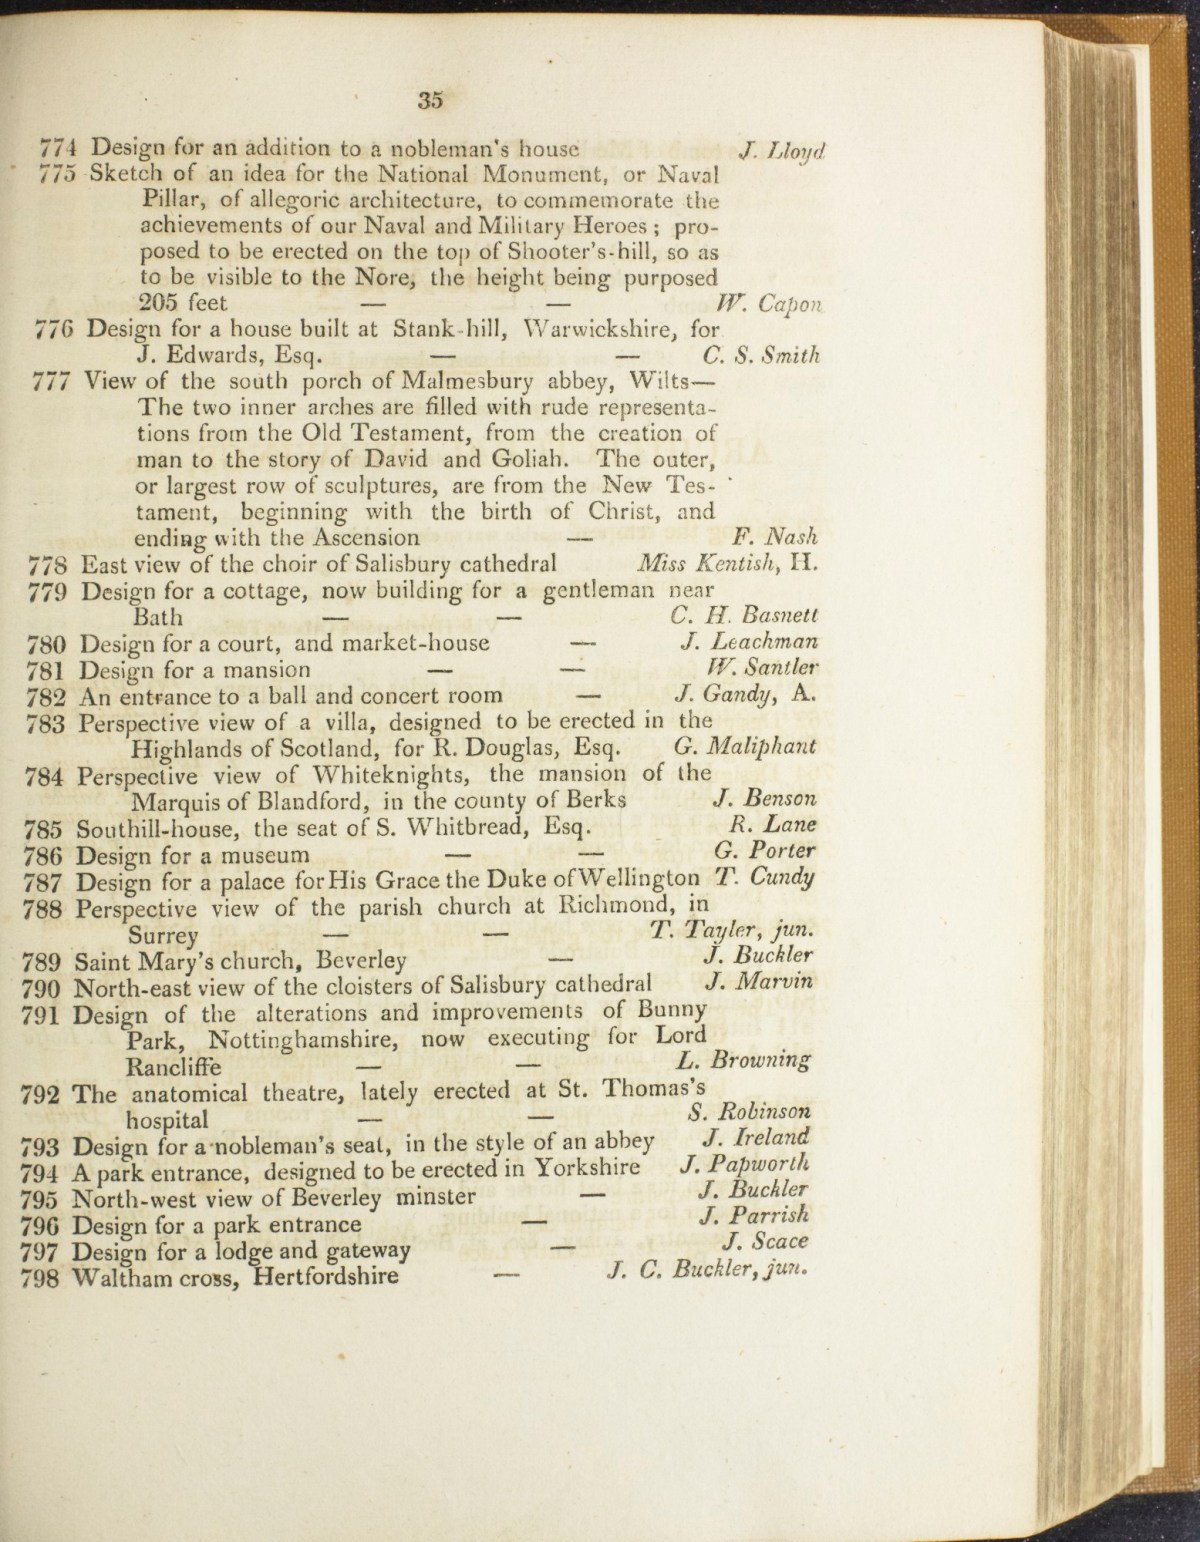 35
774 Design for an addition to a nobleman's house J. Lloyd
775 Sketch of an idea for the National Monument, or Naval
Pillar, of allegoric architecture, to commemorate the
achievements of our Naval and Military Heroes; pro-
posed to be erected on the top of Shooter's-hill, so as
to be visible to the Nore, the height being purposed
205 feet — — W. Capon
776 Design for a house built at Stank-hill, Warwickshire, for
J. Edwards, Esq. — — C. S. Smith
777 View of the south porch of Malmesbury abbey, Wilts—
The two inner arches are filled with rude representa-
tions from the Old Testament, from the creation of
man to the story of David and Goliah. The outer,
or largest row of sculptures, are from the New Tes-
tament, beginning with the birth of Christ, and
ending with the Ascension — F. Nash
778 East view of the choir of Salisbury cathedral Miss Kentish, H.
779 Design for a cottage, now building for a gentleman near
Bath — — C. H. Basnett
780 Design for a court, and market-house — J. Leachman
781 Design for a mansion — — W. Santler
782 An entrance to a ball and concert room — J. Gandy, A.
783 Perspective view of a villa, designed to be erected in the
Highlands of Scotland, for R. Douglas, Esq. G. Maliphant
784 Perspective view of Whiteknights, the mansion of the
Marquis of Blandford, in the county of Berks J. Benson
785 Southill-house, the seat of S. Whitbread, Esq. R. Lane
786 Design for a museum — — G. Porter
787 Design for a palace for His Grace the Duke of Wellington T. Cundy
788 Perspective view of the parish church at Richmond, in
Surrey — — T. Tayler, jun.
789 Saint Mary's church, Beverley — J. Buckler
790 North-east view of the cloisters of Salisbury cathedral J. Marvin
791 Design of the alterations and improvements of Bunny
Park, Nottinghamshire, now executing for Lord
Rancliffe — — L. Browning
792 The anatomical theatre, lately erected at St. Thomas's
hospital — — S. Robinson
793 Design for a nobleman's seat, in the style of an abbey J. Ireland
794 A park entrance, designed to be erected in Yorkshire J. Papworth
795 North-west view of Beverley minster — J. Buckler
796 Design for a park entrance — J. Parrish
797 Design for a lodge and gateway — J. Scace
798 Waltham cross, Hertfordshire — J. C. Buckler, jun.